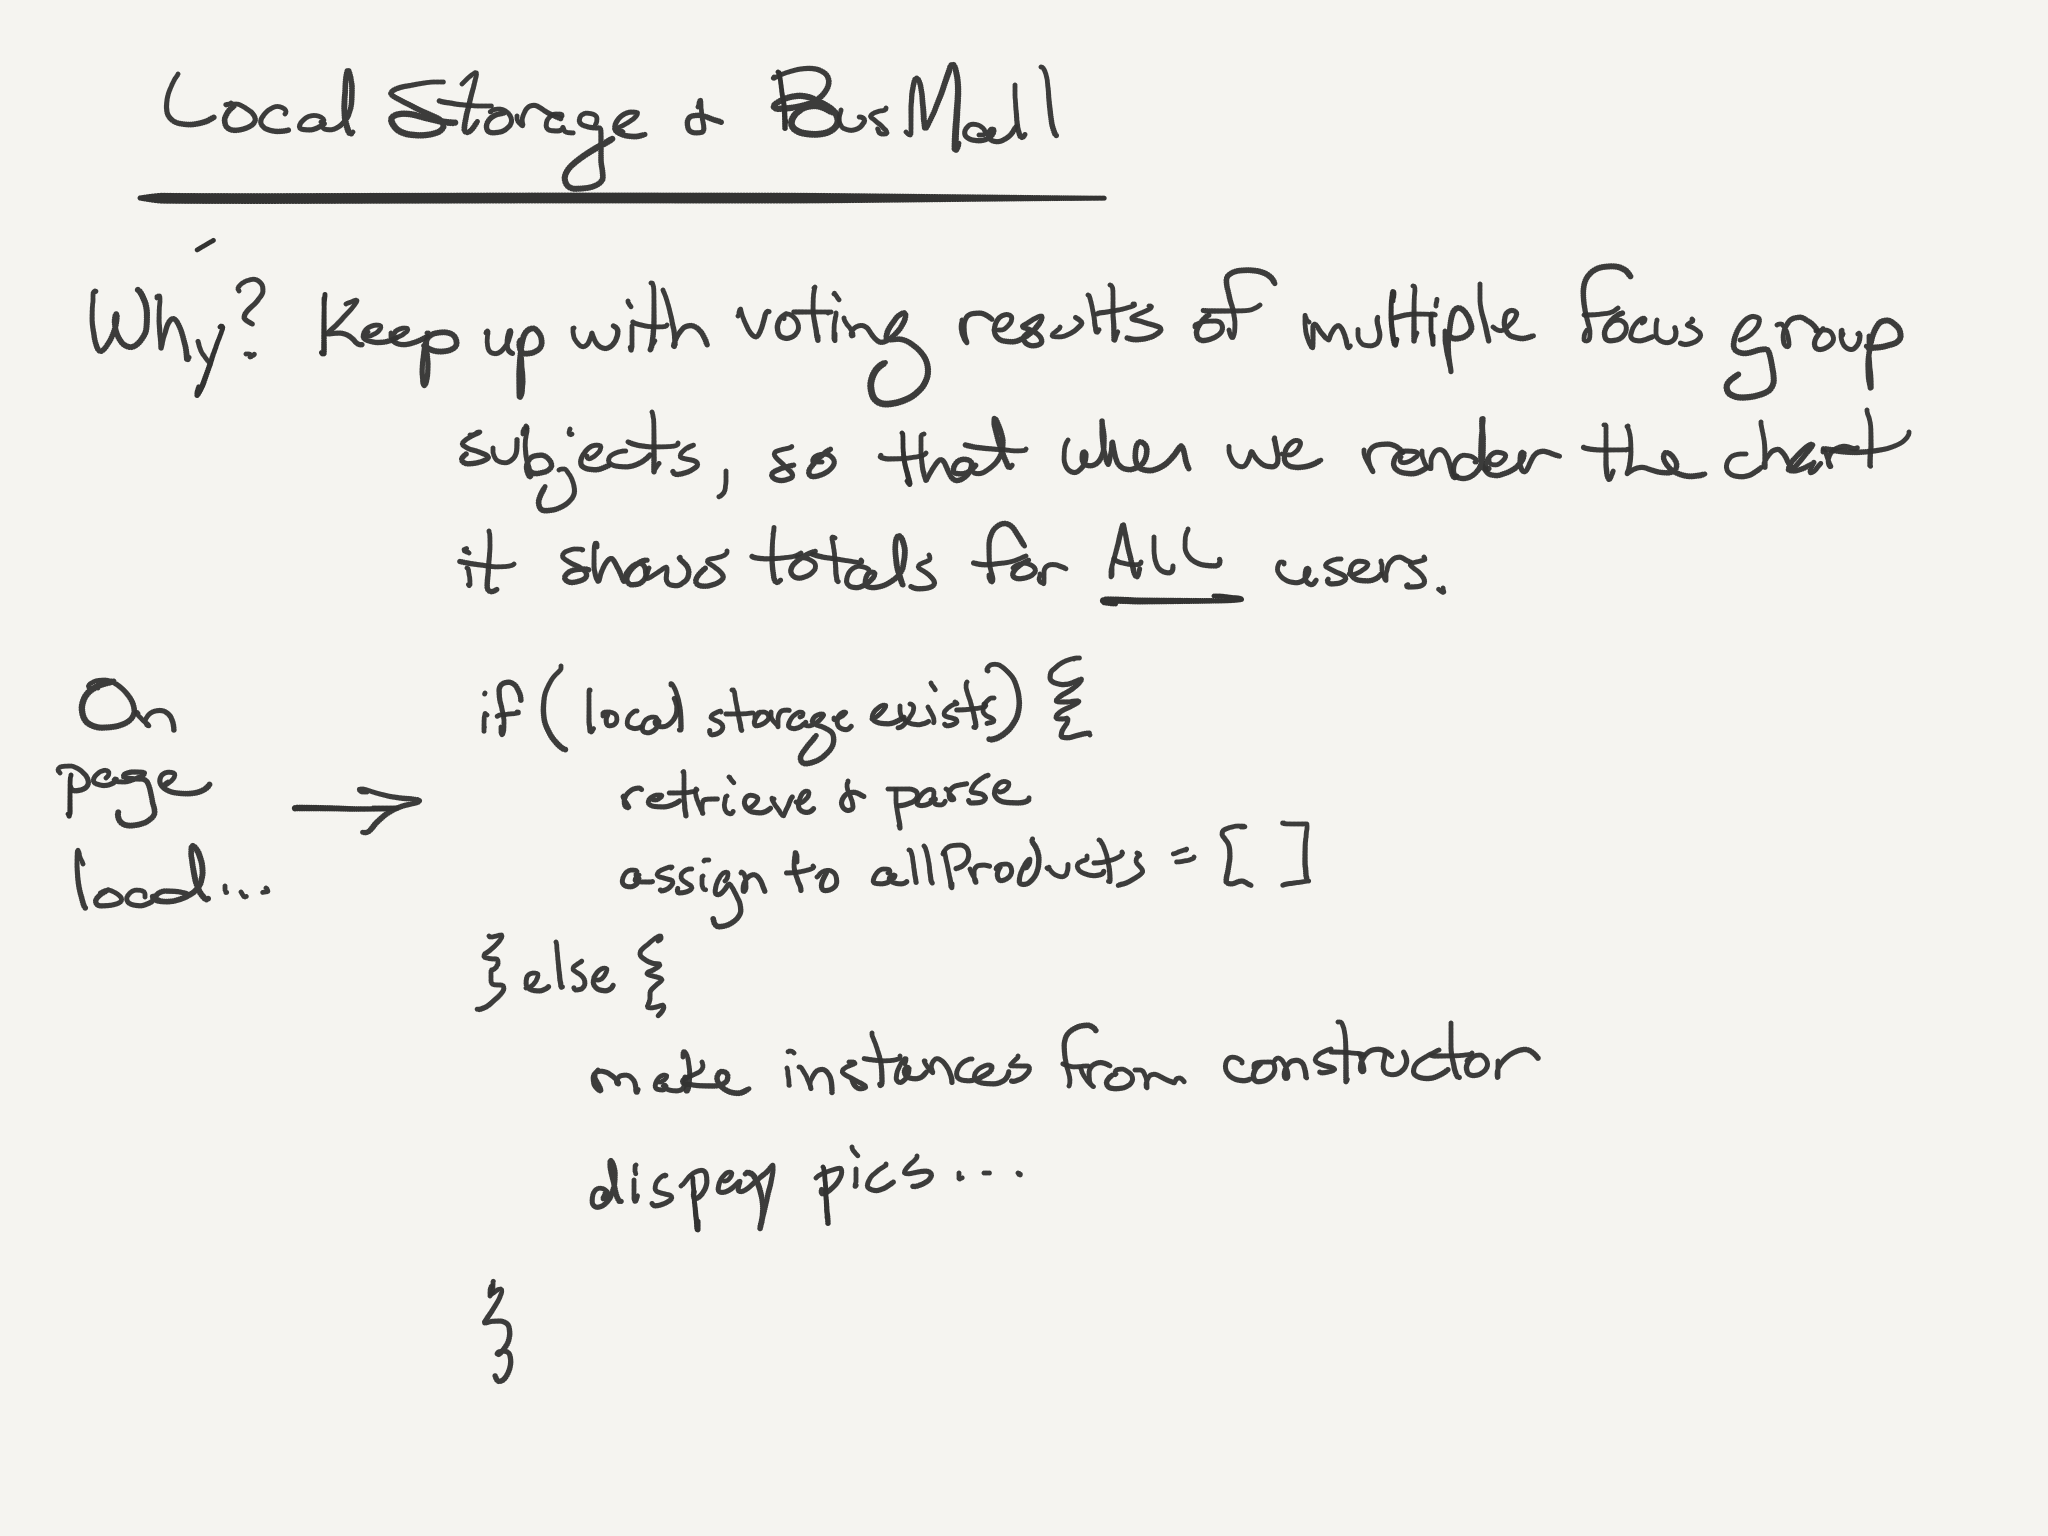 Local Storage & BusMall
Why? Keep up with voting results of multiple focus group
subjects, so that when we render the chart
it shows totals for ALL users.
On
page
load...
if (local storage exists) {
retrieve & parse
assign to allProducts = [ ]
} else {
make instances from constructor
dispay pics...
}